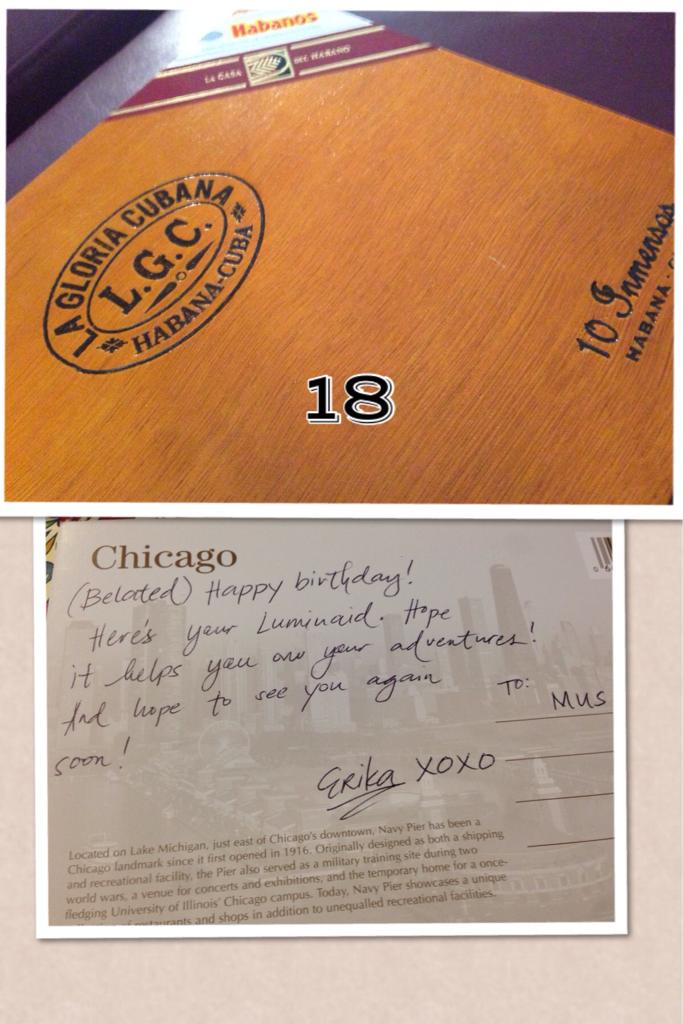 Habanos
LA CASA DEL HABANO
LA GLORIA CUBANA
L.G.C.
HABANA-CUBA
10 Inmensos
HABANA
18
Chicago
(Belated) Happy birthday!
Here's your Luminaid. Hope
it helps you on your adventures!
And hope to see you again
soon!
Erika XOXO
TO:
MUS
Located on Lake Michigan, just east of Chicago's downtown, Navy Pier has been a
Chicago landmark since it first opened in 1916. Originally designed as both a shipping
and recreational facility, the Pier also served as a military training site during two
world wars, a venue for concerts and exhibitions, and the temporary home for a once-
fledging University of Illinois' Chicago campus. Today, Navy Pier showcases a unique
of restaurants and shops in addition to unequalled recreational facilities.